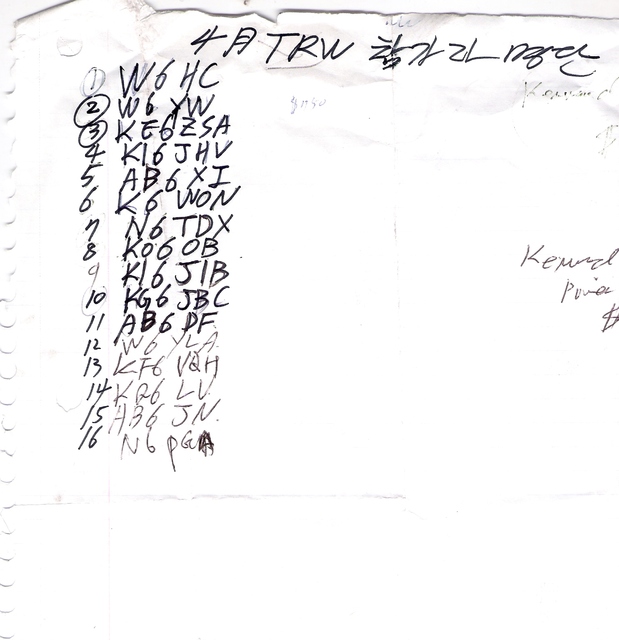 4月 TRW 참가자 명단
① W6 HC
② W6 YW
③ KE6 ZSA
4 K16 JHV
5 AB6 XI
6 K6 WON
7 N6 TDX
8 KO6 OB
9 K16 JIB
10 KG6 JBC
11 AB6 DF
12 W6 YLA
13 KF6 VQH
14 KQ6 LV
15 AB6 JN
16 N6 PGA